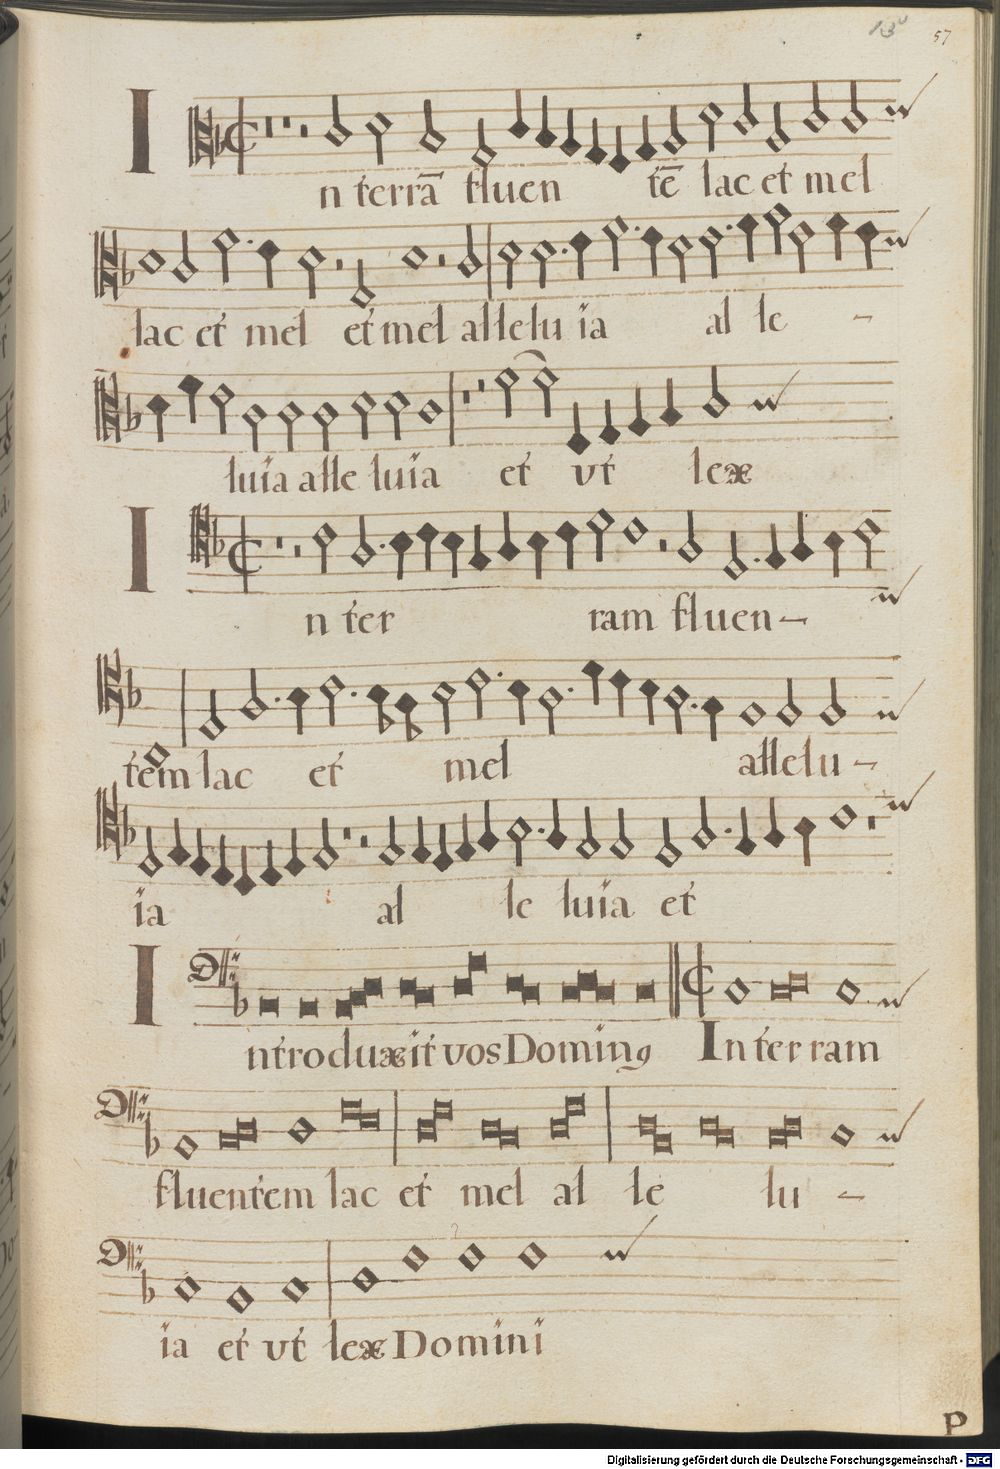 57
In terrā fluen tē lac et mel
lac et mel et mel allelu ia al le -
luia alle luia et vt lex
In ter ram fluen-
tem lac et mel allelu-
ia al le luia et
Introduxit vos Domin9 In ter ram
fluentem lac et mel al le lu -
ia et vt lex Domini
P
Digitalisierung gefördert durch die Deutsche Forschungsgemeinschaft - DFG